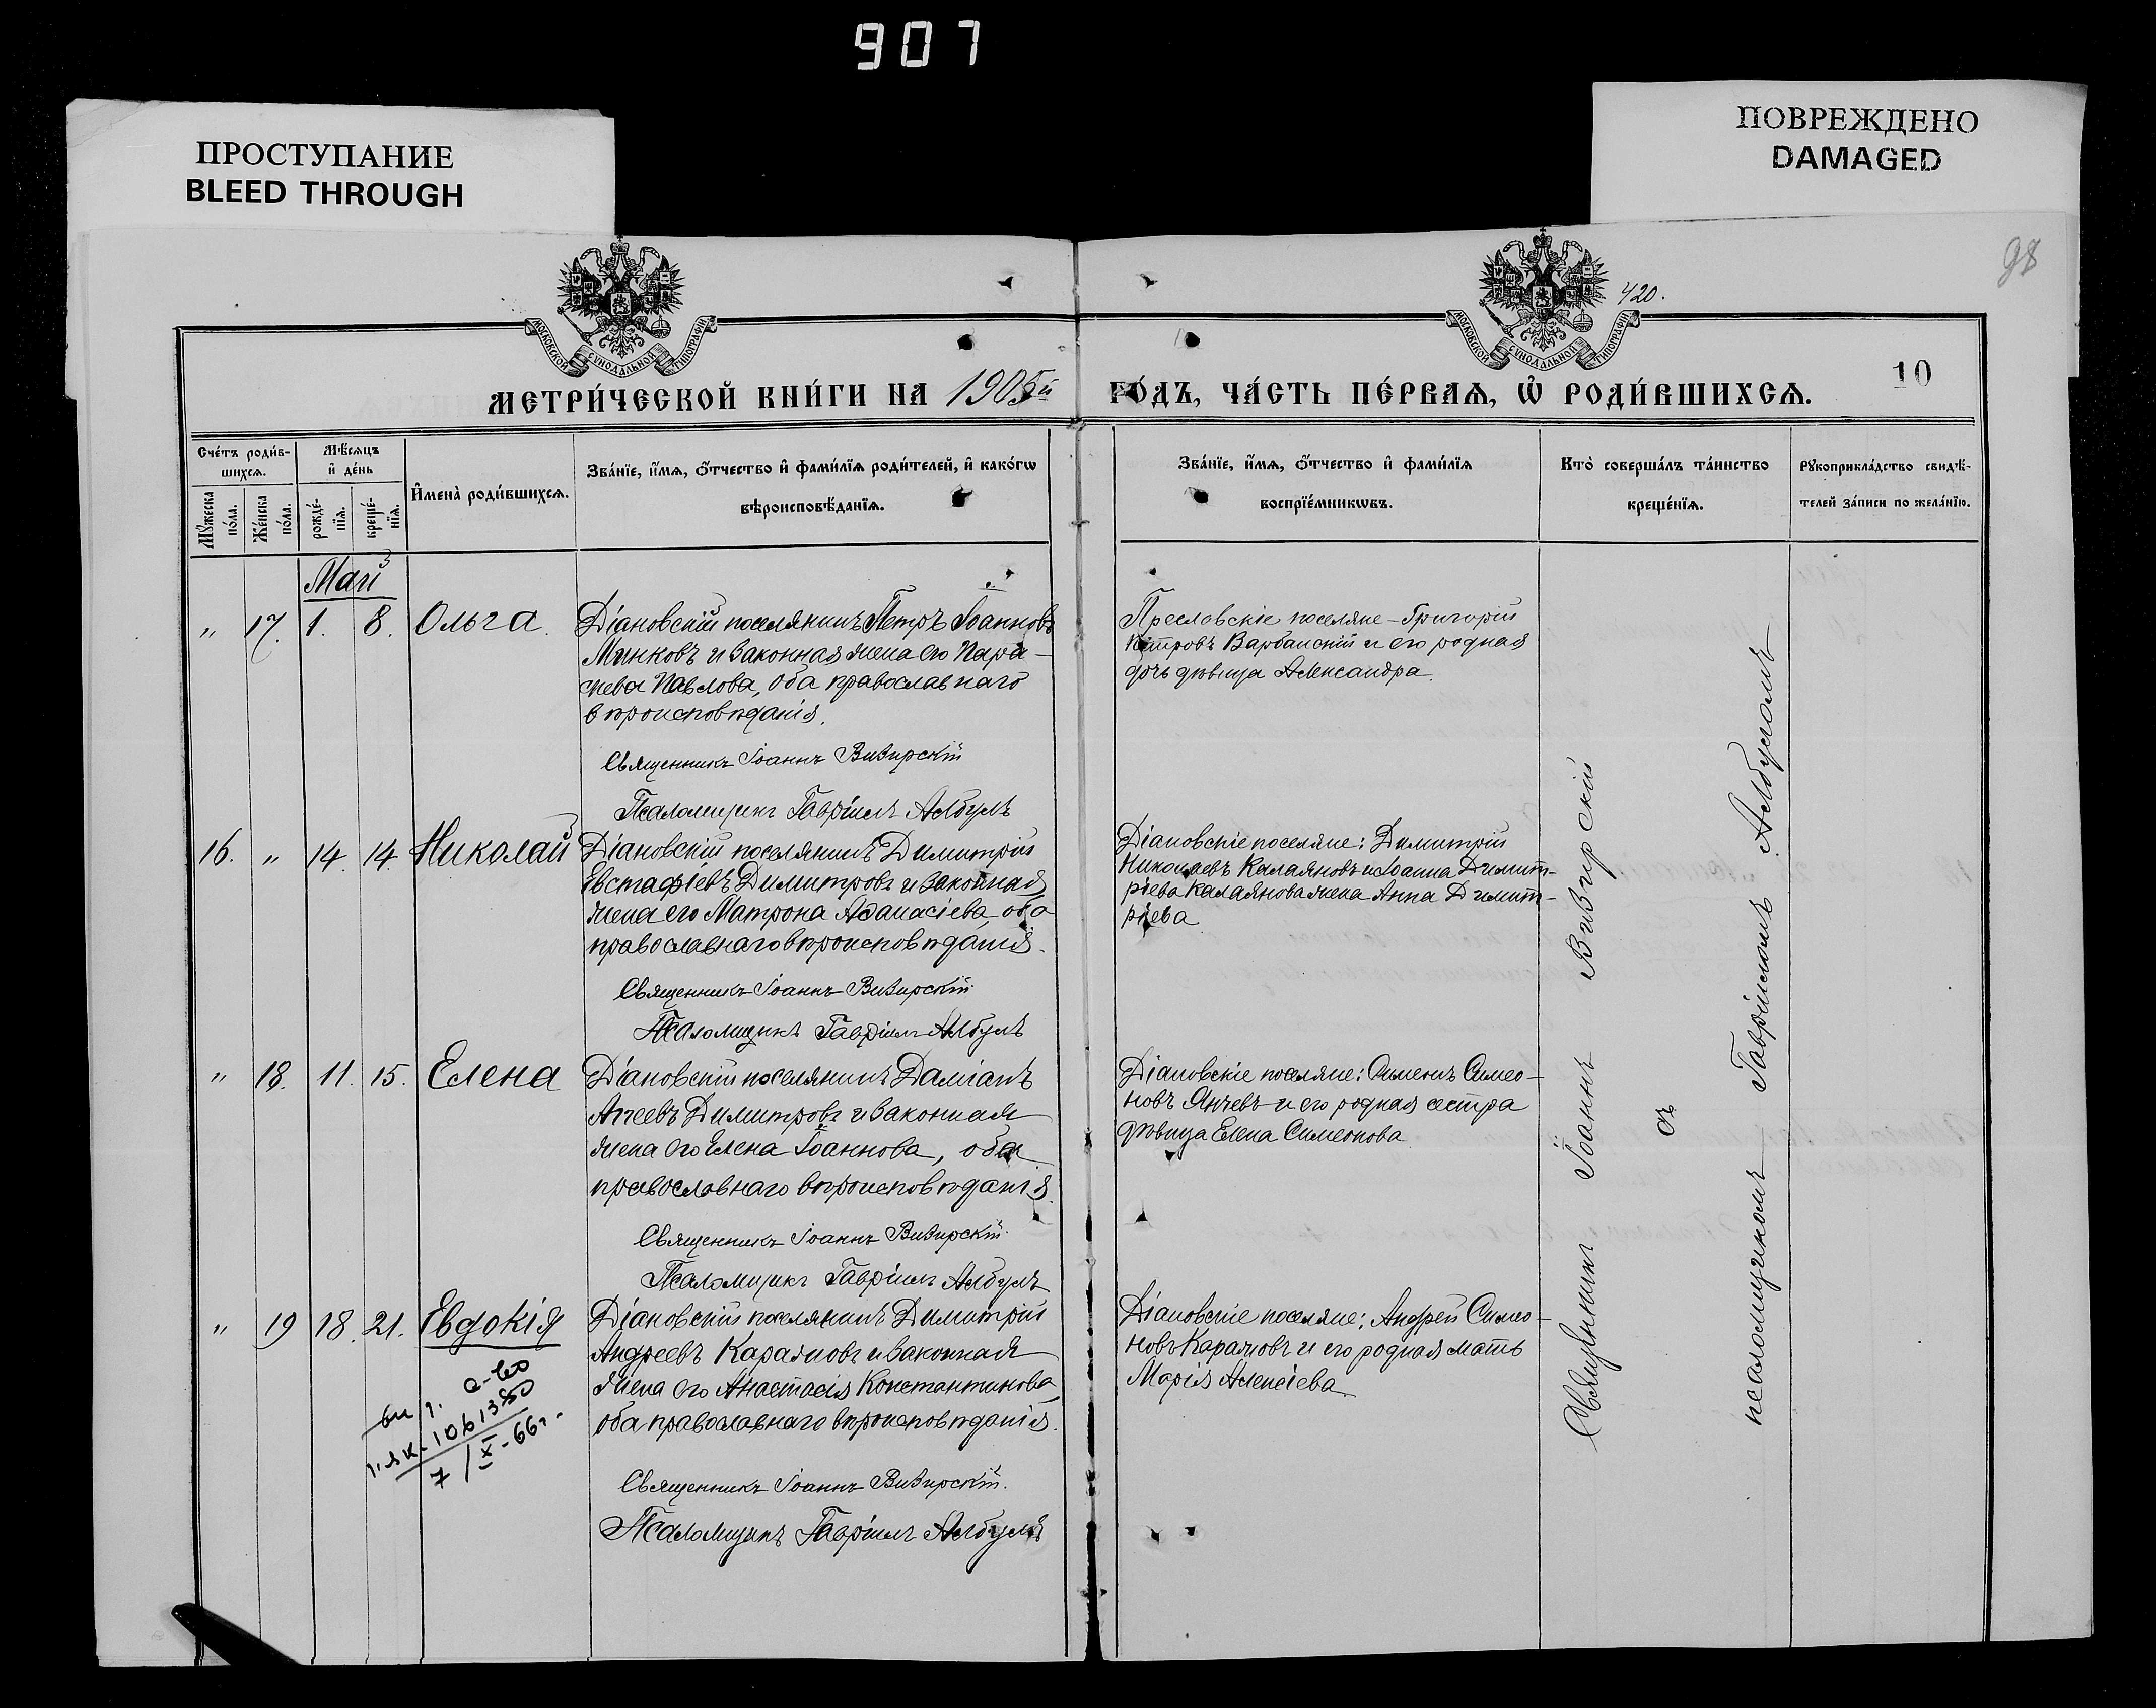 907
ПРОСТУПАНИЕ
BLEED THROUGH
ПОВРЕЖДЕНО
DAMAGED
98
420.
МОСКОВСКОЙ СѴНОДАЛЬНОЙ ТИПОГРАФІИ
МОСКОВСКОЙ СѴНОДАЛЬНОЙ ТИПОГРАФІИ
10
МЕТРИ́ЧЕСКОЙ КНИ́ГИ НА 1905й ГО́ДЪ, ЧА́СТЬ ПЕ́РВАѦ, Ѡ҆ РОДИ́ВШИХСѦ.
Сче́тъ роди́в-
шихсѧ.
Мꙋ́жеска по́ла.
Же́нска по́ла.
Мѣ́сѧцъ
и҆ де́нь
рожде́-
нїѧ.
креще́-
нїѧ.
И҆мена̀ роди́вшихсѧ.
Зва́нїе, и҆́мѧ, ѻ҆́тчество и҆ фами́лїѧ роди́телей, и҆ како́гѡ
вѣроисповѣ́данїѧ.
Зва́нїе, и҆́мѧ, ѻ҆́тчество и҆ фами́лїѧ
воспрїе́мникѡвъ.
Кто̀ соверша́лъ та́инство
креще́нїѧ.
Рꙋкоприкла́дство свидѣ́-
телей за́писи по жела́нїю.
Май
" 17. 1. 8. Ольга.
Діановскій поселянинъ Петръ Іоанновъ
Минковъ и законная жена его Пара-
скева Павлова, оба православнаго
вѣроисповѣданія.
Священникъ Іоаннъ Визирскій
Псаломщикъ Гавріилъ Албулъ
Пресловскіе поселяне - Григорій
Петровъ Варбанскій и его родная
дочь дѣвица Александра.
16. " 14. 14. Николай
Діановскій поселянинъ Димитрій
Евстафіевъ Димитровъ и законная
жена его Матрона Аѳанасіева, оба
православнаго вѣроисповѣданія.
Священникъ Іоаннъ Визирскій
Псаломщикъ Гавріилъ Албулъ
Діановскіе поселяне: Димитрій
Николаевъ Калаяновъ и Іоанна Димит-
ріева Калаянова жена Анна Димит-
ріева
" 18. 11. 15. Елена
Діановскій поселянинъ Даміанъ
Аггеевъ Димитровъ и законная
жена его Елена Іоаннова, оба
православнаго вѣроисповѣданія.
Священникъ Іоаннъ Визирскій
Псаломщикъ Гавріилъ Албулъ
Діановскіе поселяне: Симеонъ Симео-
новъ Янчевъ и его родная сестра
дѣвица Елена Симеонова
" 19 18 21. Евдокія
Діановскій поселянинъ Димитрій
Андреевъ Караяновъ и законная
жена его Анастасія Константинова,
оба православнаго вѣроисповѣданія.
Священникъ Іоаннъ Визирскій.
Псаломщикъ Гавріилъ Албулъ
Діановскіе поселяне: Андрей Симео-
новъ Караяновъ и его родная мать
Марія Алексіева.
7/IX-66г.
Священникъ Іоаннъ Визирскій
съ
псаломщикомъ Гавріиломъ Албуломъ